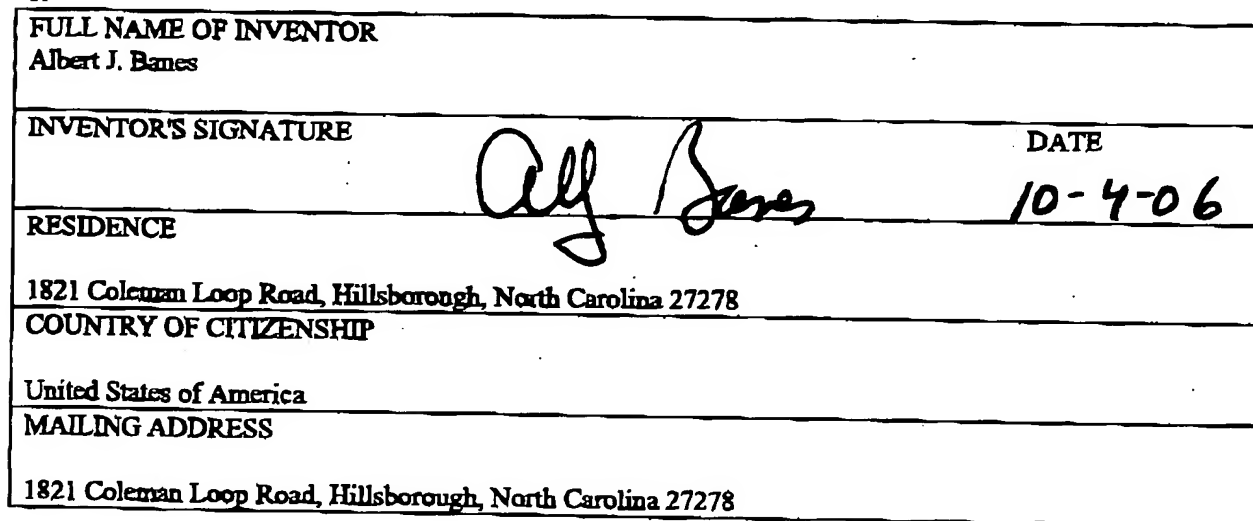 FULL NAME OF INVENTOR
Albert J. Banes
INVENTOR'S SIGNATURE
DATE
Alj Banes
10-4-06
RESIDENCE
1821 Coleman Loop Road, Hillsborough, North Carolina 27278
COUNTRY OF CITIZENSHIP
United States of America
MAILING ADDRESS
1821 Coleman Loop Road, Hillsborough, North Carolina 27278